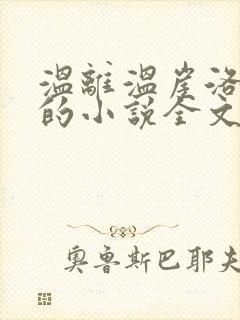 溫離溫崖洛
的小說全文
奧魯斯巴耶夫